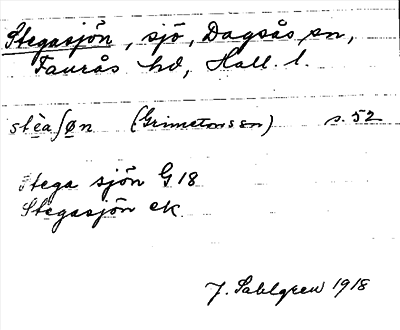 Stegasjön, sjö, Dagsås sn,
Faurås hd, Hall. l.
stèaʃøn (Grimetons sn) s. 52
Stega sjön G 18
Stegasjön ek.
J. Sahlgren 1918